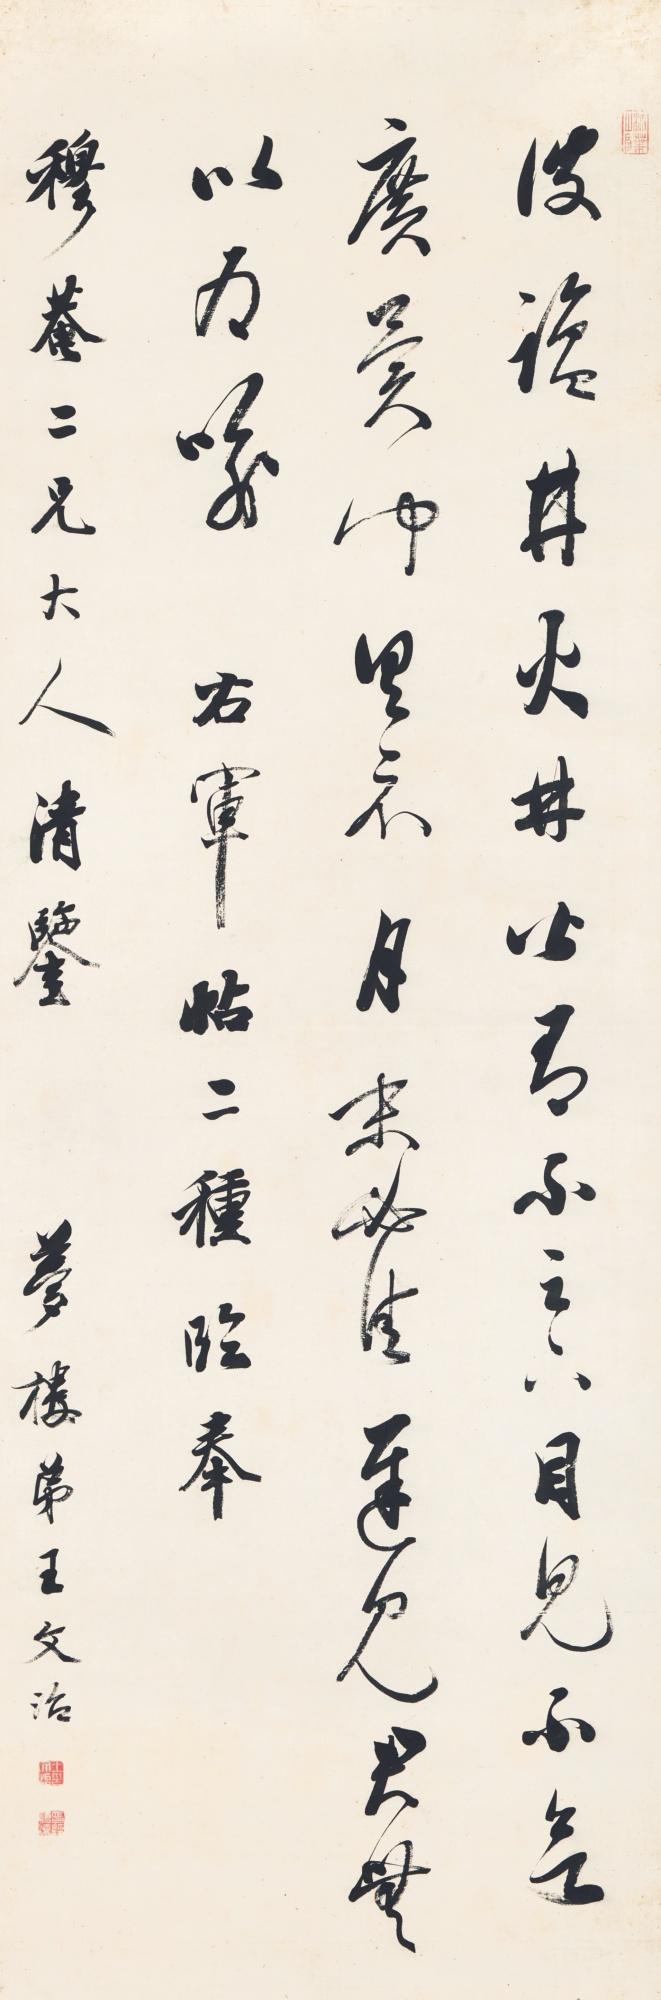 彼鹽井火井皆有不足下目見不
廣異聞具示月末必往遲見君無
以為喻 右軍帖二種臨奉
穆菴二兄大人清鑒 夢樓弟王文治